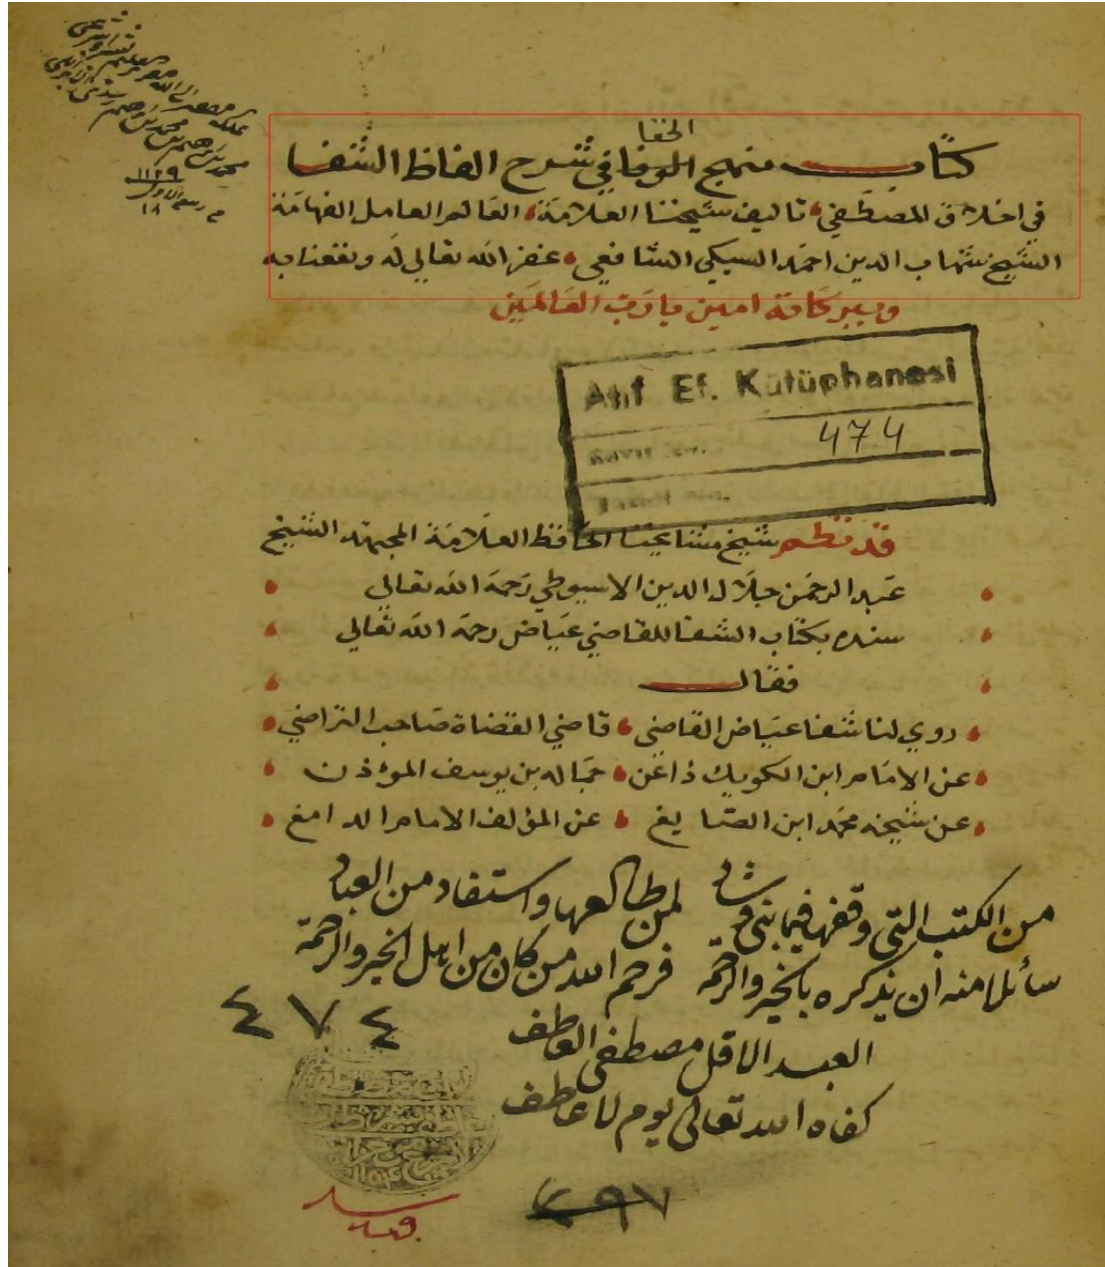 ١١٢٩
١٨
الخفا
كتاب منهج الوفا في شرح الفاظ الشفا
في اخلاق المصطفي تاليف شيخنا العلامة العالم العامل الفهامة
الشيخ شهاب الدين احمد السبكي الشافعي غفر الله تعالي له ونفعنا به
وببركاته امين يا رب العالمين
Atıf Ef. Kütüphanesi
474
قد نظم شيخ مشايخنا الحافظ العلامة المجتهد الشيخ
عبد الرحمن جلال الدين الاسيوطي رحمه الله تعالي
سنده بكتاب الشفا للقاضي عياض رحمه الله تعالي
فقال
روي لنا شفا عياض القاضي قاضي القضاة صاحب التراضي
عن الامام ابن الكويك ذا عن جماله بن يوسف الموذن
عن شيخه محمد ابن الصايغ عن المؤلف الامام الدامغ
من الكتب التي وقفها فيما بنى وشاد لمن طالعها واستفاد من العباد
سائلا منه ان يذكره بالخير والرحمة فرحم الله من كان من اهل الخير والرحمة
العبد الاقل مصطفى العاطف
كفاه الله تعالى يوم لا عاطف
٤٧٤
٢٩٧